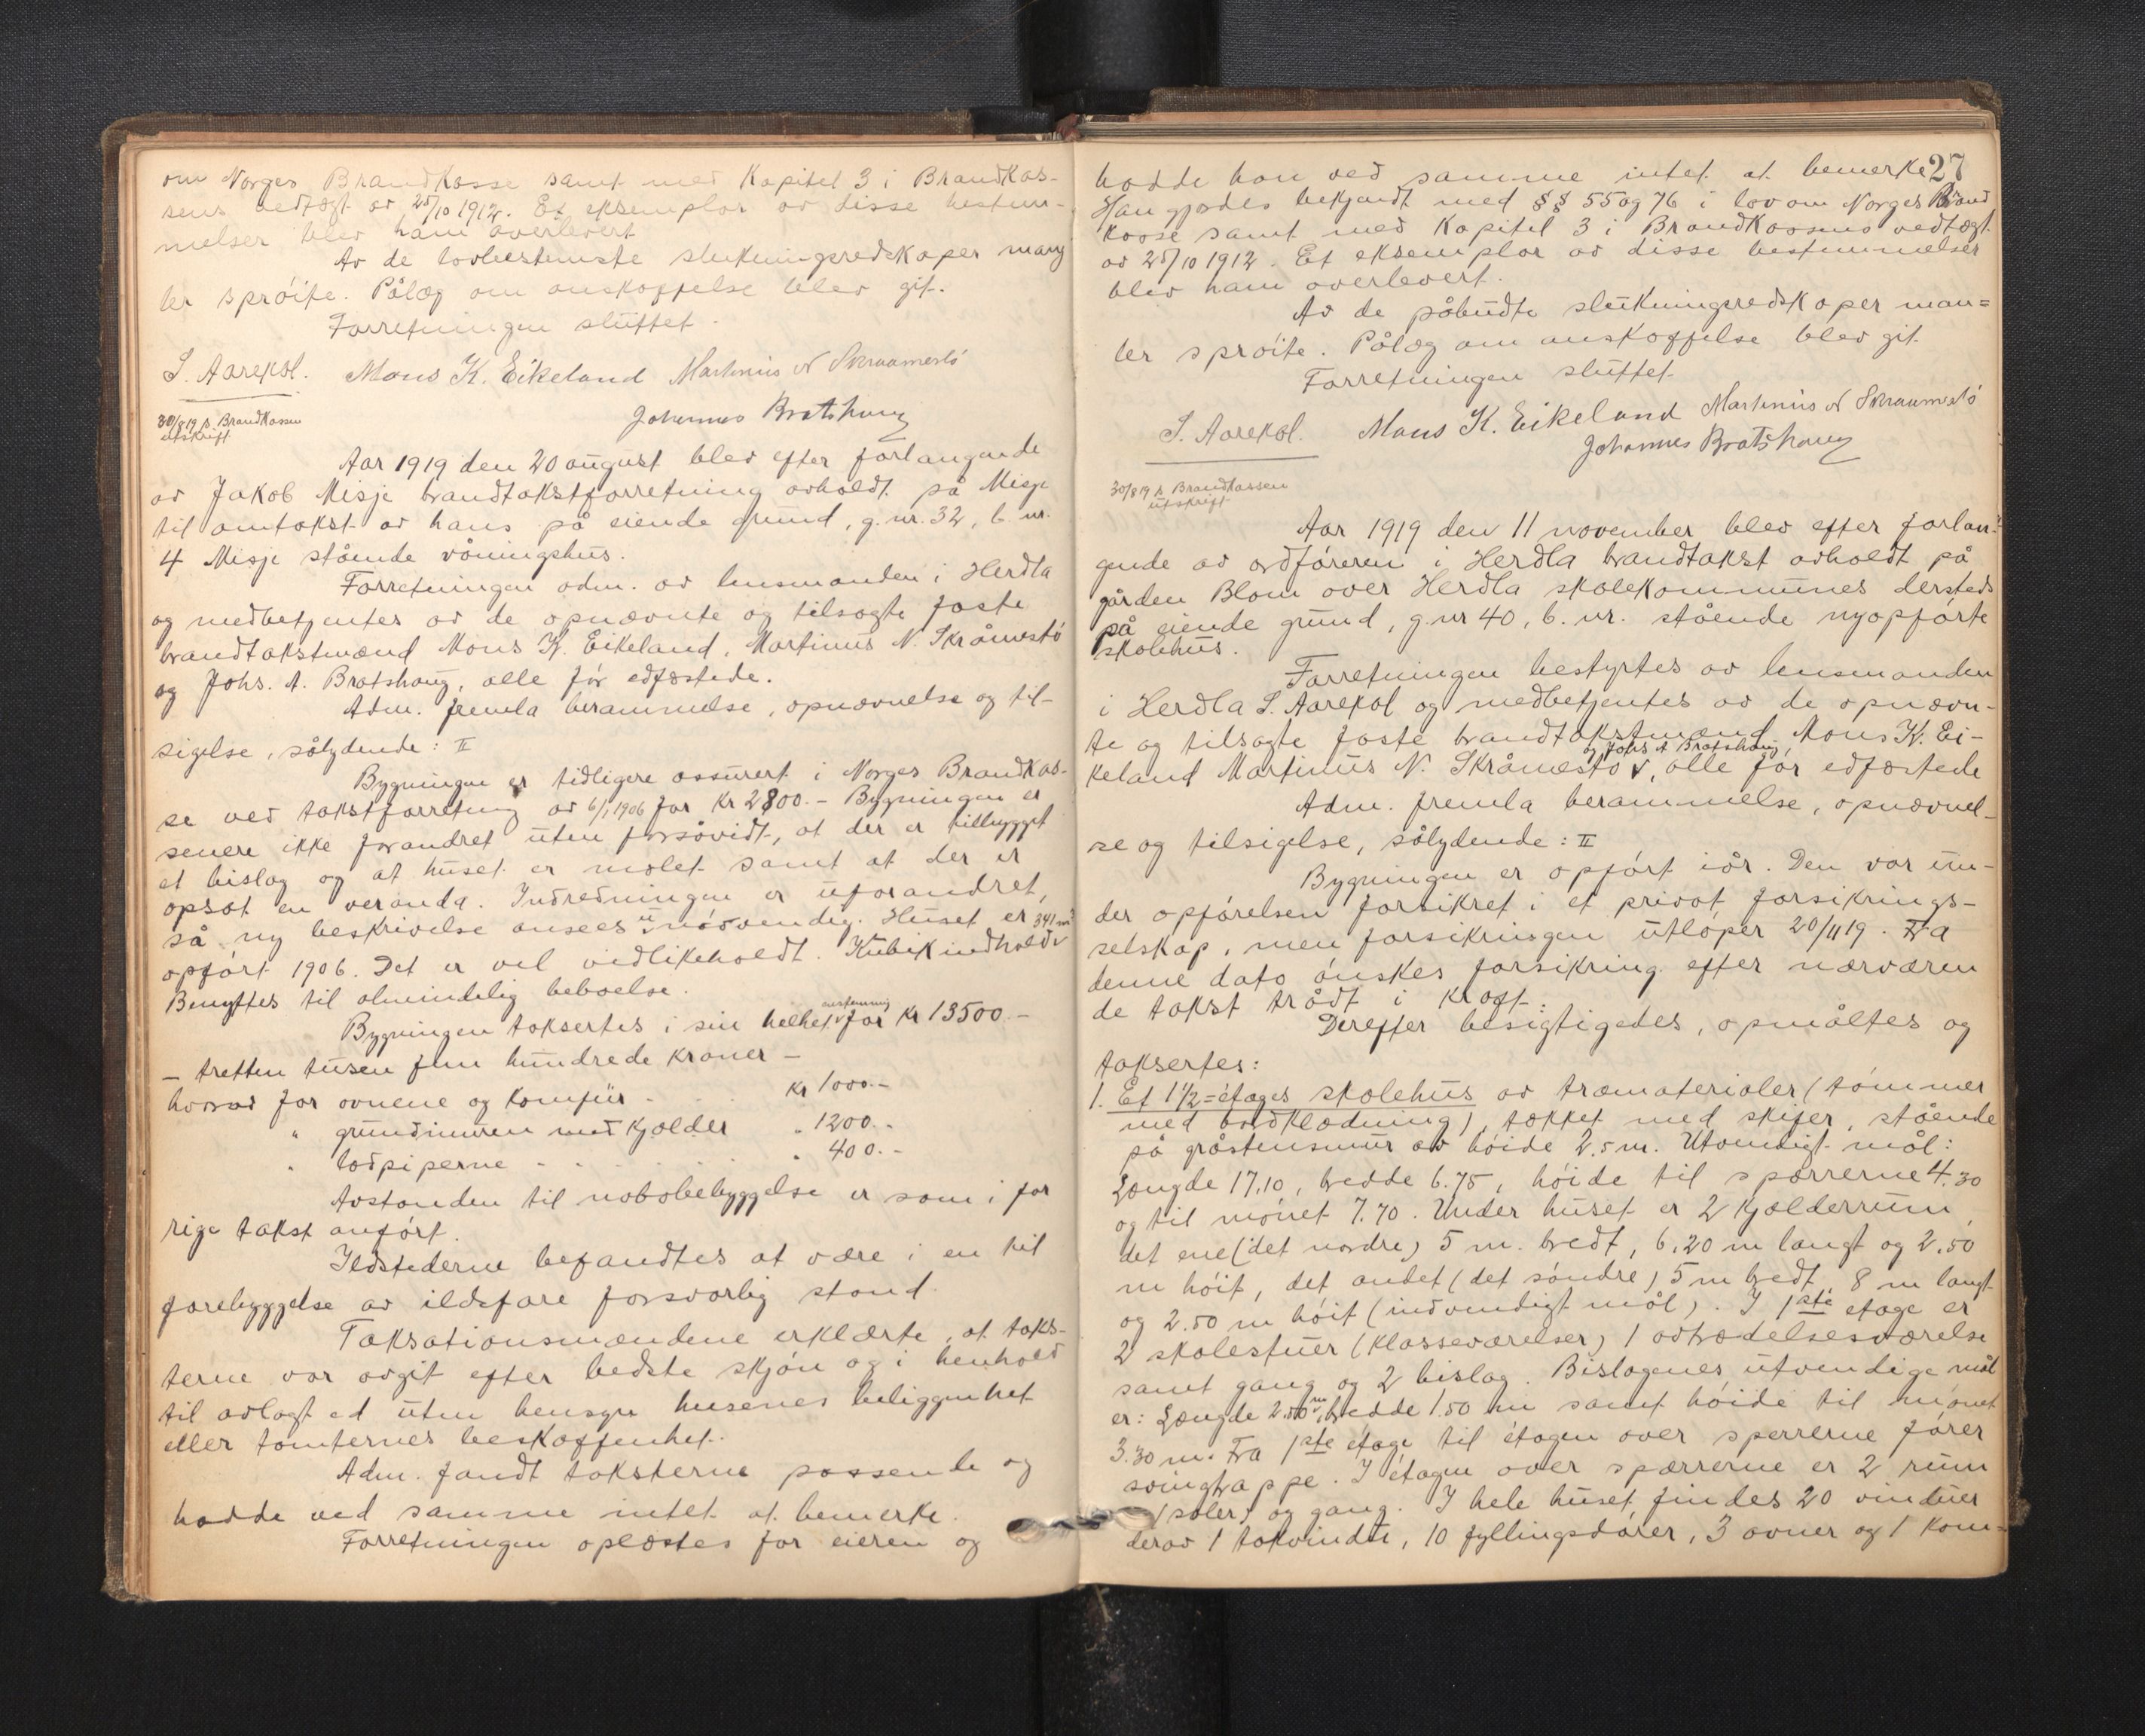 om Norges Brandkasse samt med Kapitel 3 i Brandkas-
sens vedtægt av 25/10 1912. Et eksemplar av disse bestem-
melser blev ham overlevert
Av de lovbestemte slukningsredskaper mang
ler sprøite. Pålæg om anskaffelse blev git.
Forretningen sluttet.
S. Aarekol. Mons K. Eikeland Martinus N Skraamestö
Johannes Bratshaug
30/8 19 s. Brandkassen
utskrift
Aar 1919 den 20 august blev efter forlangende
av Jakob Misje brandtakstforretning avholdt på Misje
til omtakst av hans på eiende grund, g.nr. 32, b. nr.
4 Misje stående våningshus.
Forretningen adm. av lensmanden i Herdla
og medbetjentes av de opnævnte og tilsagte faste
brandtakstmænd Mons K. Eikeland, Martinus N. Skråmestö
og Johs. A. Bratshaug, alle før edfæstede.
Adm. fremla berammelse, opnævnelse og til-
sigelse, sålydende: II
Bygningen er tidligere assurert i Norges Brandkas-
se ved takstforretning av 6/1 1906 for Kr 2800.- Bygningen er
senere ikke forandret uten forsåvidt, at der er tilbygget
et bislag og at huset er malet samt at der er
opsat en veranda. Indredningen er uforandret,
så ny beskrivelse ansees unödvendig. Huset er
opfört 1906. Det er vel vedlikeholdt. Kubikindhold 341 m3
Benyttes til almindelig beboelse.
Bygningen taksertes i sin helhet for Kr 13500.-
- tretten tusen fem hundrede kroner -
hvorav for ovnene og komfür . kr 1000.-
" grundmuren med kjælder " 1200.-
" lodpiperne - - - " 400.-
Avstanden til nabobebyggelse er som i for
rige takst anført.
Ildstederne befandtes at være i en til
forebyggelse av ildsfare forsvarlig stand.
Taksationsmændene erklærte, at taks-
terne var avgit efter bedste skjön og i henhold
til avlagt ed uten hensyn husenes beliggenhet
eller tomternes beskaffenhet.
Adm. fandt taksterne passende og
hadde ved samme intet at bemerke.
Forretningen oplæstes for eieren og
27
hadde han ved samme intet at bemerke
Han gjordes bekjendt med §§ 55 og 76 i lov om Norges Brand
kasse samt med Kapitel 3 i Brandkassens vedtægt
av 25/10 1912. Et eksemplar av disse bestemmelser
blev ham overlevert.
Av de påbudte slukningsredskaper man=
ler sprøite. Pålæg om anskaffelse blev git.
Forretningen sluttet.
S. Aarekol. Mons K. Eikeland Martinus N Skraamestö
Johannes Bratshaug
30/8 19 s. Brandkassen
utskrift
Aar 1919 den 11 november blev efter forlan-
gende av ordföreren i Herdla brandtakst avholdt på
gården Blom over Herdla skolekommunes dersteds
på eiende grund, g.nr 40, b. nr. stående nyopförte
skolehus.
Forretningen bestyrtes av lensmanden
i Herdla S. Aarekol og medbetjentes av de opnævn-
te og tilsagte faste brandtakstmænd Mons K. Ei-
keland Martinus N. Skråmestö og Johs A Bratshaug, alle før edfæstede
Adm. fremla berammelse, opnævnel-
se og tilsigelse, sålydende: II
Bygningen er opfört iår. Den var un-
der opförelsen forsikret i et privat forsikrings-
selskap, men forsikringen utlöper 20/11 19. Fra
denne dato önskes forsikring efter nærværen
de takst trådt i kraft.
Derefter besigtigedes, opmåltes og
taksertes:
1. Et 1 1/2=etages skolehus av træmaterialer (tömmer
med bordklædning), tækket med skifer, stående
på gråstensmur av höide 2.5 m. Utvendigt mål:
Længde 17.10, bredde 6.75, höide til sperrerne 4.30
og til mönet 7.70. Under huset er 2 kjælderrum,
det ene (det nordre) 5 m. bredt, 6.20 m langt og 2.50
m höit, det andet (det söndre) 5 m bredt, 8 m langt
og 2.50 m höit (indvendigt mål). I 1ste etage er
2 skolestuer (klasseværelser) 1 avtrædelsesværelse
samt gang og 2 bislag. Bislagenes utvendige mål
er: Længde 2.50 m, bredde 1.50 m samt höide til mönet
3.30 m. Fra 1ste etage til etagen over sperrerne förer
svingtrappe. I etagen over sperrerne er 2 rum
(saler) og gang. I hele huset findes 20 vinduer
derav 1 takvindu, 10 fyllingsdörer, 3 ovner og 1 kom-